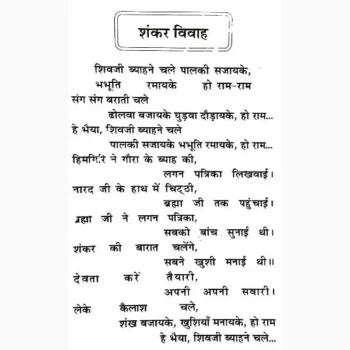 शंकर विवाह
शिवजी ब्याहने चले पालकी सजायके,
भभूति रमायके हो राम-राम
संग संग बराती चले
ढोलवा बजायके घुड़वा दौड़ायके, हो राम...
हे भैया, शिवजी ब्याहने चले
पालकी सजायके भभूति रमायके, हो राम...
हिमगिरि ने गौरा के ब्याह की,
लगन पत्रिका लिखवाई।
नारद जी के हाथ में चिट्ठी,
ब्रह्मा जी तक पहुंचाई।
ब्रह्मा जी ने लगन पत्रिका,
सबको बांच सुनाई थी।
शंकर की बारात चलेंगे,
सबने खुशी मनाई थी॥
देवता करें तैयारी,
अपनी अपनी सबारी।
लेके कैलाश चले,
शंख बजायके, खुशियाँ मनायके, हो राम
हे भैया, शिवजी ब्याहने चले...